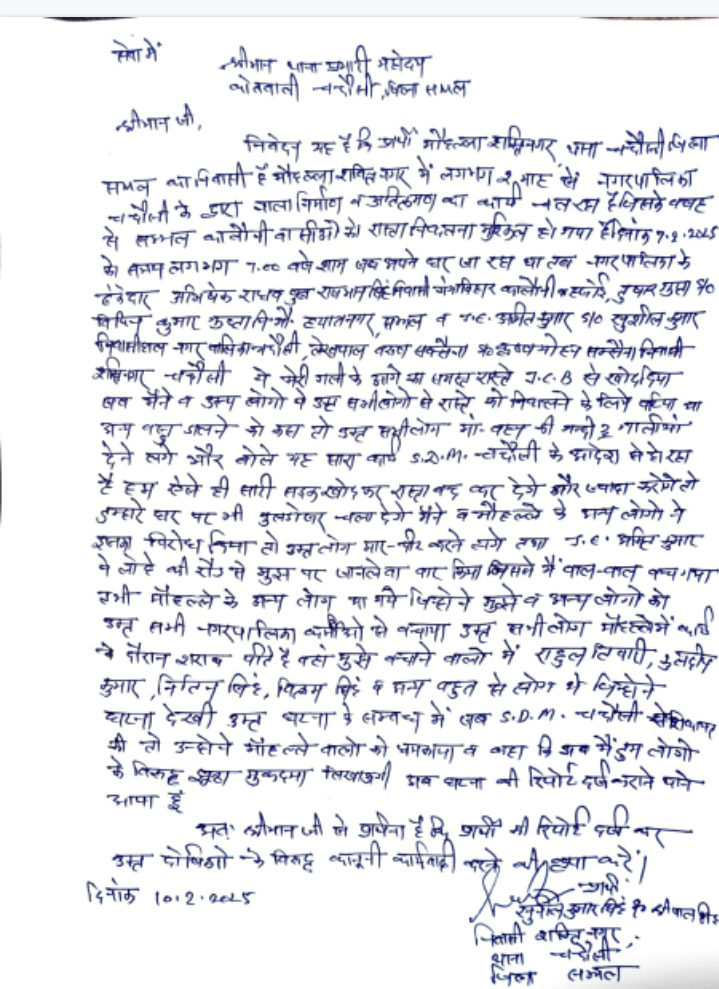 सेवा में
श्रीमान थाना प्रभारी महोदय
कोतवाली चन्दौसी, जिला सम्भल
श्रीमान जी,
निवेदन यह है कि प्रार्थी मौहल्ला शक्तिनगर थाना चन्दौसी जिला
सम्भल का निवासी है मौहल्ला शक्ति नगर में लगभग 2 माह से नगरपालिका
चन्दौसी के द्वारा नाला निर्माण व अतिक्रमण का कार्य चल रहा है जिसके वजह
से समस्त कालौनी वासीओ को रास्ता निकलना मुश्किल हो गया है दिनांक 7.2.2025
को समय लगभग 7.00 बजे शाम जब अपने घर जा रहा था तब नगरपालिका के
ठेकेदार अभिषेक राघव पुत्र निवासी कालौनी तुषार गुप्ता S/o
विपिन कुमार गुप्ता नि. मौ. हयातनगर, सम्भल व J.E. अमित कुमार S/o सुशील कुमार
नगर पालिका चन्दौसी, लेखपाल वरुण सक्सैना S/o कृष्ण मोहन सक्सैना निवासी
शक्तिनगर चन्दौसी ने मेरी गली के आगे का समस्त रास्ते J.C.B से खोद दिया
जब मैने व अन्य लोगो ने उक्त सभी लोगो से रास्ते को निकालने के लिये या
अन्य वस्तु डालने को कहा तो उक्त सभी लोग मां-बहन की गन्दी 2 गालीयां
देने लगे और बोले यह सारा कार्य S.D.M. चन्दौसी के आदेश से हो रहा
है हम ऐसे ही सारी सडक खोदकर रास्ता बन्द कर देगे और ज्यादा करोगे तो
तुम्हारे घर पर भी बुलडोजर चला देगे मैने व मौहल्ले के अन्य लोगो ने
इसका विरोध किया तो उक्त लोग मार-पीट करने लगे तथा J.E. अमित कुमार
ने लोहे की रॉड से मुझ पर जानलेवा वार किया जिसमे मैं बाल-बाल बच गया
तभी मौहल्ले के अन्य लोग आ गये जिन्होने मुझे व अन्य लोगो को
उक्त सभी नगरपालिका कर्मीओ से बचाया उक्त सभी लोग मौहल्ले में कार्य
के दौरान शराब पीते है वहां मुझे बचाने वालो में राहुल तिवारी, कुलदीप
कुमार, नितिन सिंह, विक्रम सिंह व अन्य बहुत से लोग थे जिन्होने
घटना देखी उक्त घटना के सम्बन्ध में जब S.D.M. चन्दौसी से शिकायत
की तो उन्होने मौहल्ले वालो को धमकाया व कहा कि अब मैं तुम लोगो
के विरुद्ध झूठा मुकदमा लिखाऊगी अब घटना की रिपोर्ट दर्ज कराने थाने
आया हूँ
अतः श्रीमान जी से प्रार्थना है कि प्रार्थी की रिपोर्ट दर्ज कर
उक्त दोषिओ के विरुद्ध कानूनी कार्यवाही करने की कृपा करें।
दिनांक 10.2.2025
प्रार्थी
सुनील कुमार सिंह S/o
निवासी शक्ति नगर,
थाना चन्दौसी
जिला सम्भल